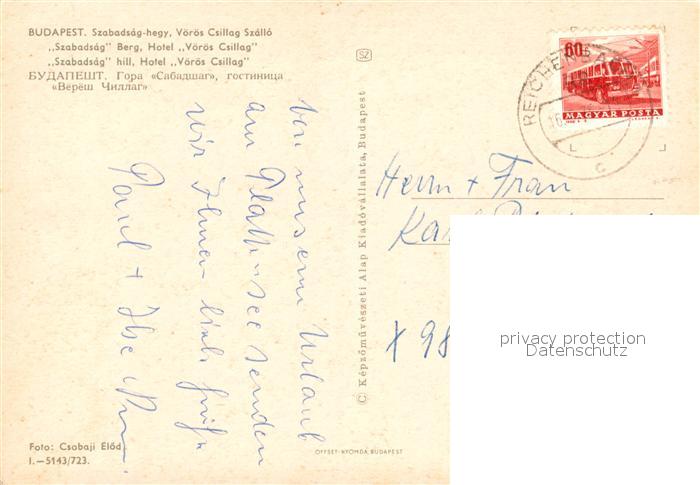 BUDAPEST. Szabadság-hegy, Vörös Csillag Szálló
„Szabadság" Berg, Hotel „Vörös Csillag"
„Szabadság" hill, Hotel „Vörös Csillag"
БУДАПЕШТ. Гора «Сабадшаг», гостиница
«Верёш Чиллаг»
SZ
60f
MAGYAR POSTA
REICHENBACH
c
Von unserm Urlaub
am Plattensee senden
wir Ihnen liebe Grüße
Paul + Ilse
© Képzőművészeti Alap Kiadóvállalata, Budapest
Herrn + Frau
X 98
privacy protection
Datenschutz
Foto: Csobaji Előd
I.—5143/723.
OFFSET-NYOMDA, BUDAPEST